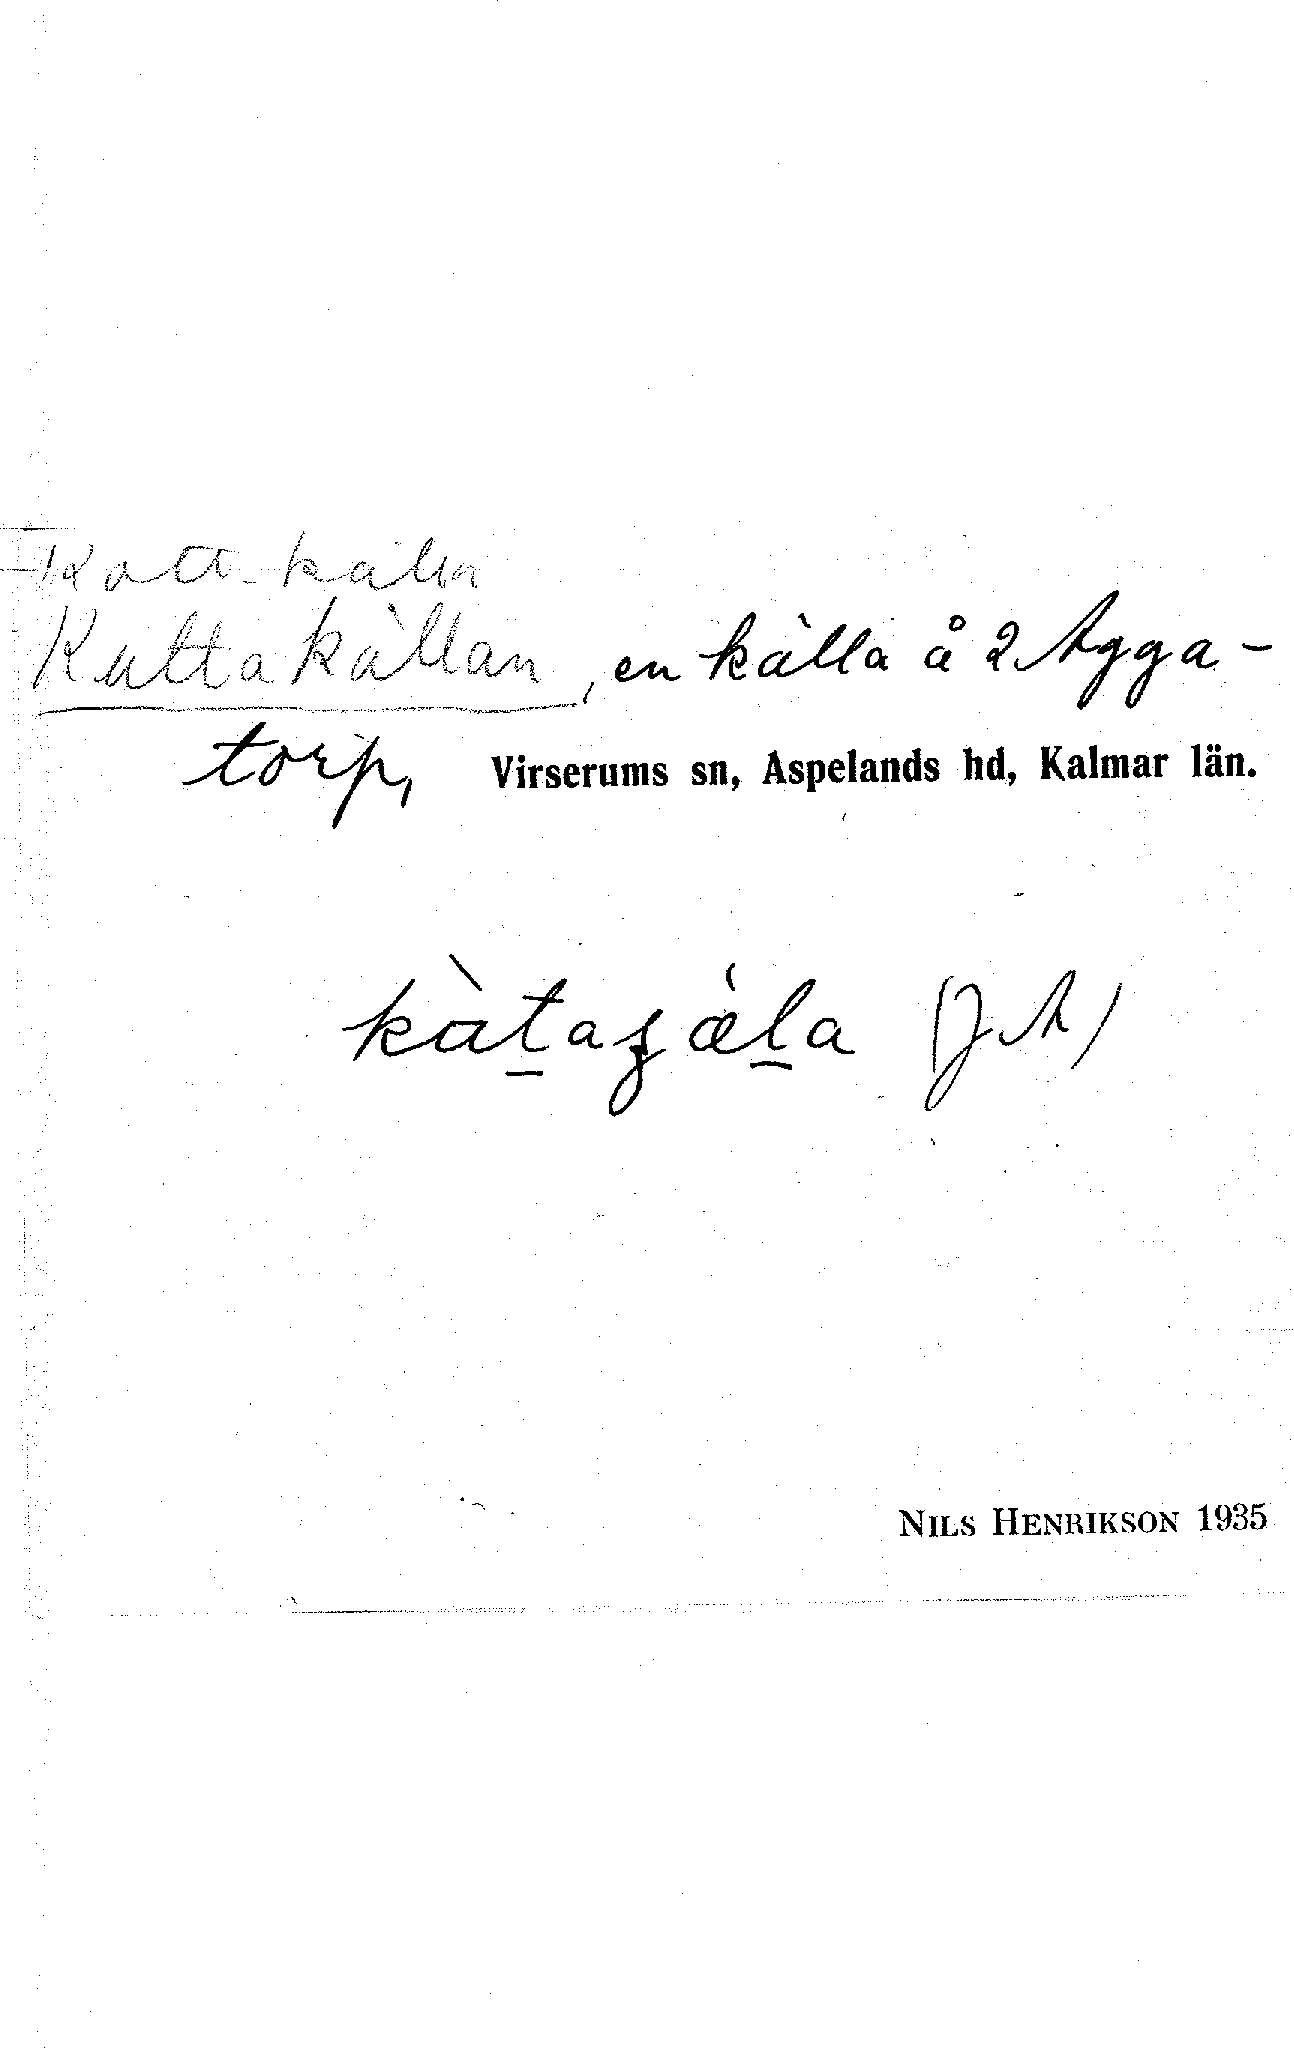 Katt-källa
Kattakällan, en källa å 2 Agga-
torp, Virserums sn, Aspelands hd, Kalmar län.
(JA)
NILS HENRIKSON 1935